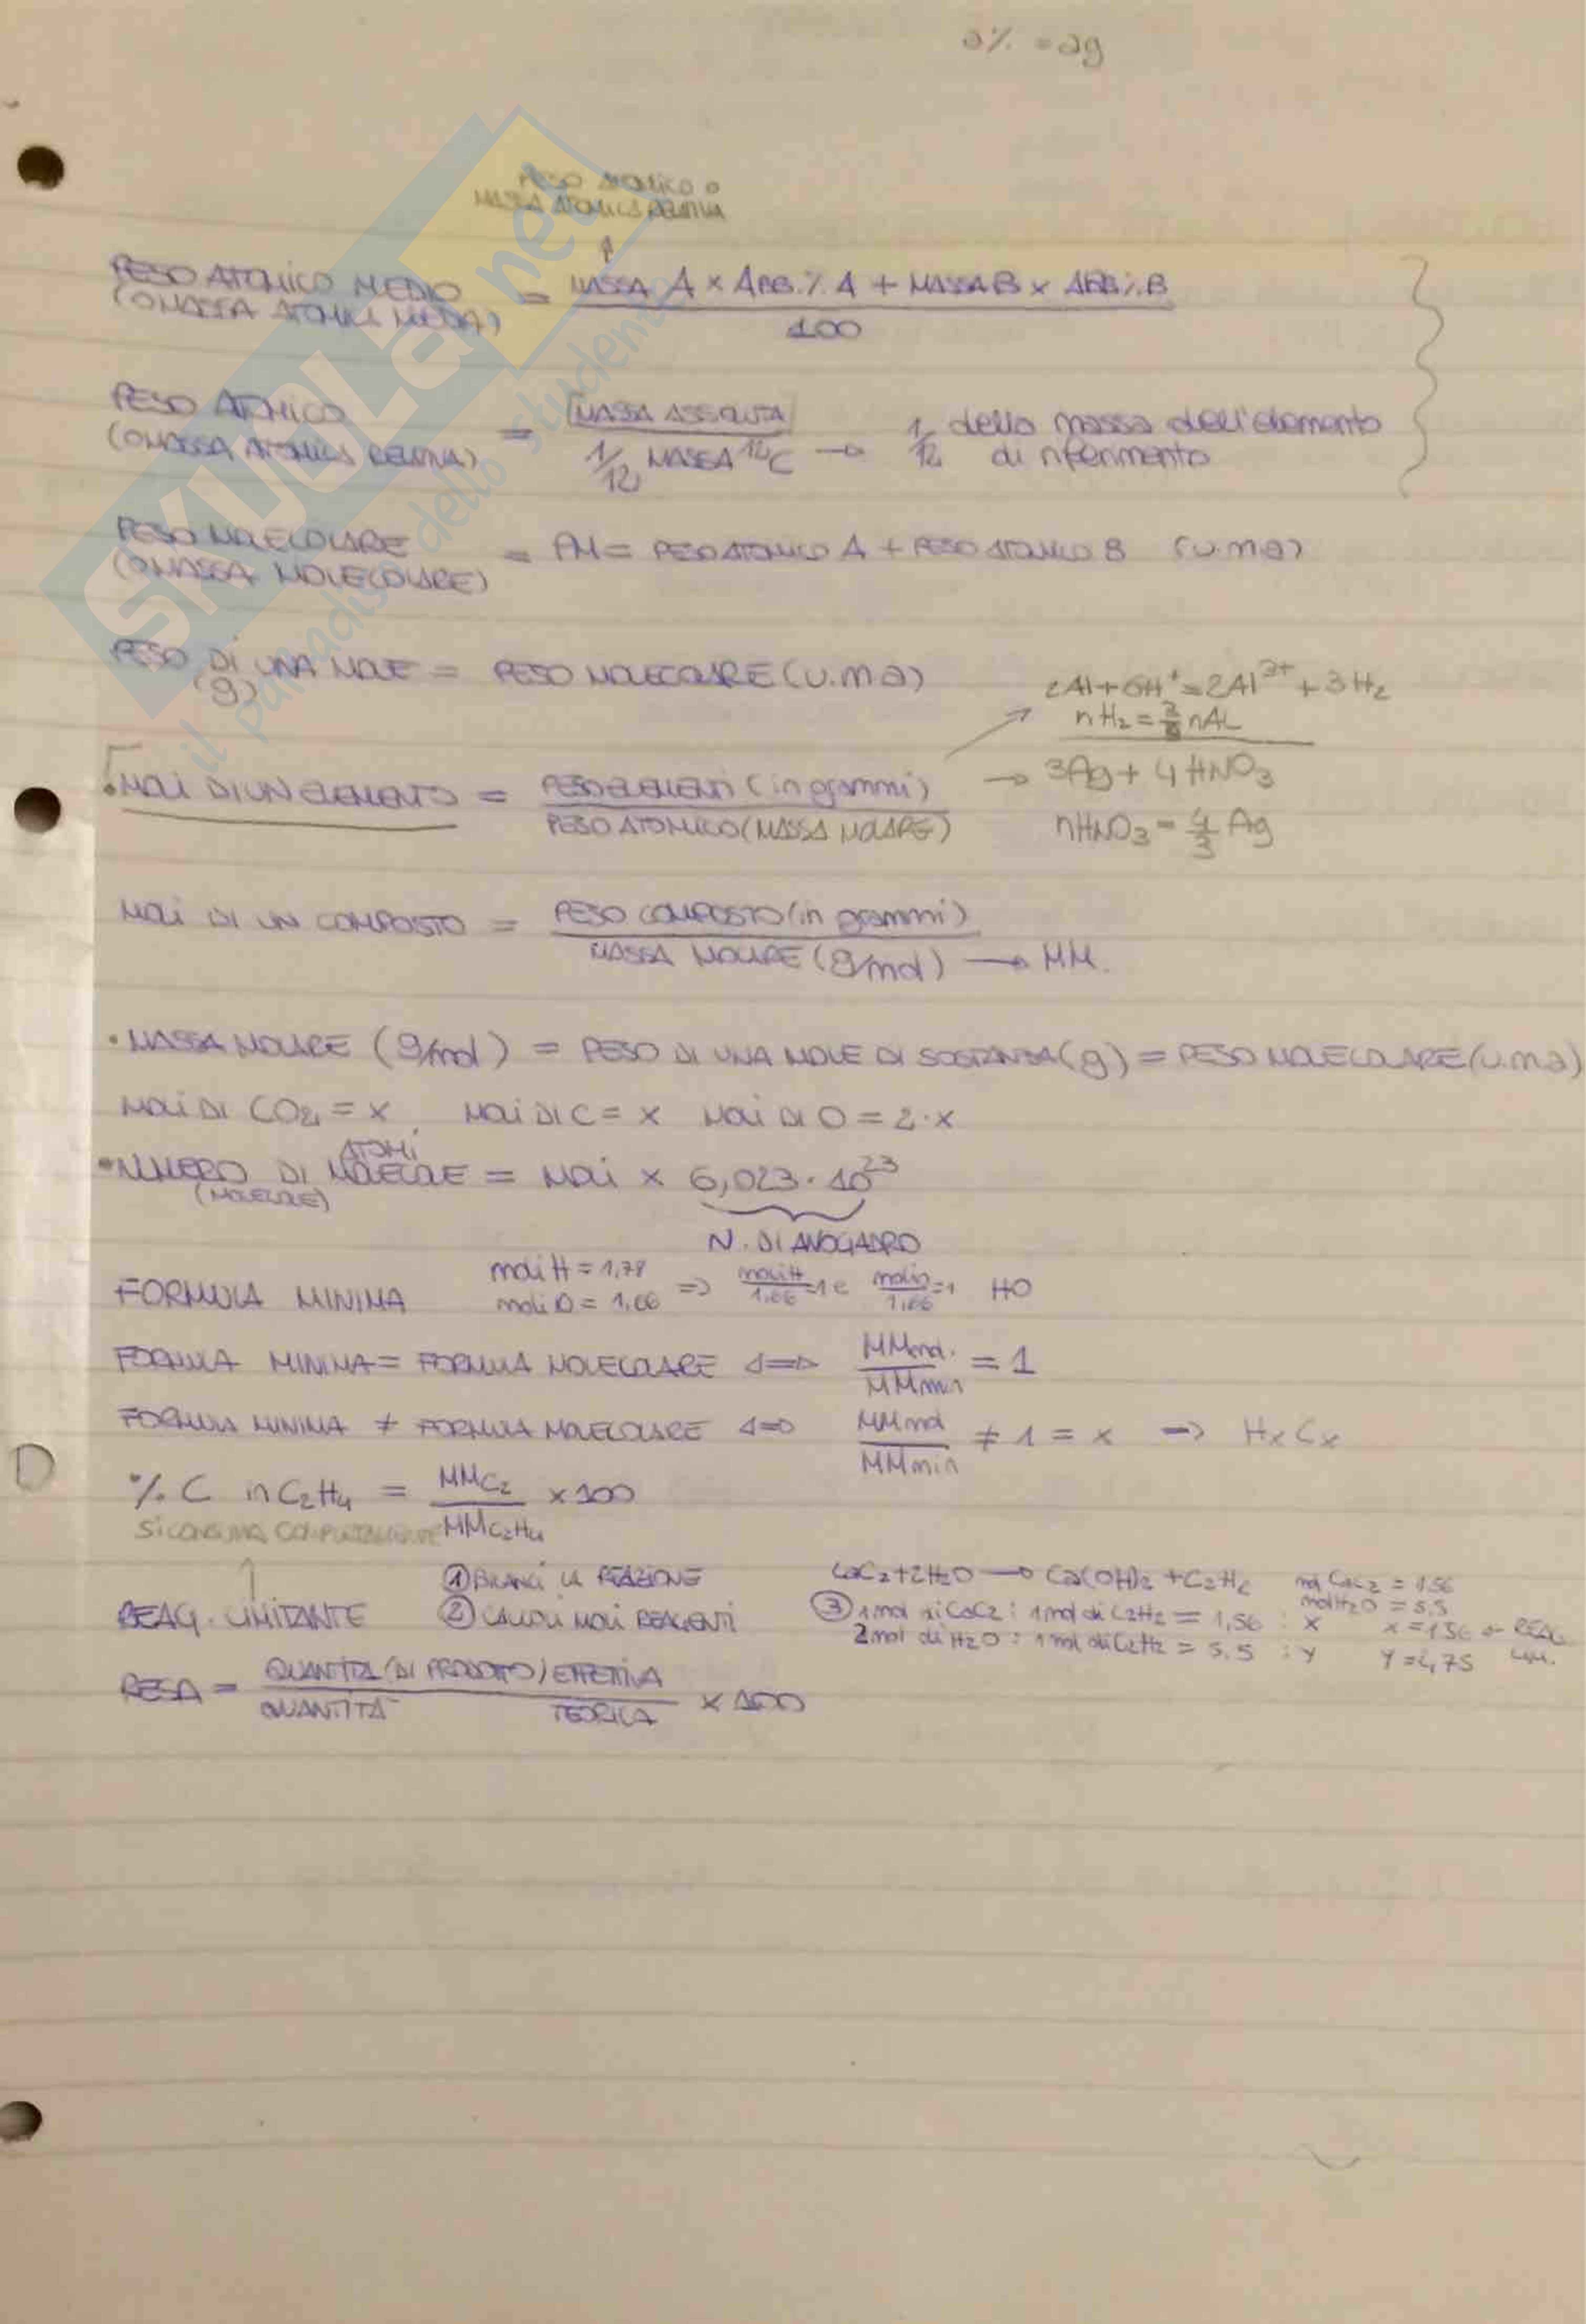 2% = 2g
PESO ATOMICO O
MASSA ATOMICA RELATIVA
PESO ATOMICO MEDIO = MASSA A × ABB.% A + MASSA B × ABB%B
(O MASSA ATOMICA MEDIA) 100
PESO ATOMICO = MASSA ASSOLUTA
(O MASSA ATOMICA RELATIVA) 1/12 MASSA ¹²C → 1/12 della massa dell'elemento
di riferimento
PESO MOLECOLARE = PM = PESO ATOMICO A + PESO ATOMICO B (u.m.a)
(O MASSA MOLECOLARE)
PESO DI UNA MOLE = PESO MOLECOLARE (u.m.a)
(g)
2Al + 6H⁺ = 2Al³⁺ + 3H₂
nH₂ = nAl
MOLI DI UN ELEMENTO = PESO ELEMENTI (in grammi) → 3Ag + 4HNO₃
PESO ATOMICO (MASSA MOLARE) nHNO₃ = 4/3 Ag
MOLI DI UN COMPOSTO = PESO COMPOSTO (in grammi)
MASSA MOLARE (g/mol) → MM.
• MASSA MOLARE (g/mol) = PESO DI UNA MOLE DI SOSTANZA (g) = PESO MOLECOLARE (u.m.a)
MOLI DI CO₂ = x, MOLI DI C = x MOLI DI O = 2·x
ATOMI
• NUMERO DI MOLECOLE = MOLI × 6,023·10²³
(MOLECOLE)
N. DI AVOGADRO
FORMULA MINIMA moli H = 1,78 ⇒ moli H/1,66 = 1 e moli O/1,66 = 1 HO
moli O = 1,66
FORMULA MINIMA = FORMULA MOLECOLARE ⇔ MMmol./MMmin = 1
FORMULA MINIMA ≠ FORMULA MOLECOLARE ⇔ MMmol/MMmin ≠ 1 = x ⇒ HxCx
% C in C₂H₄ = MMC₂/MMC₂H₄ × 100
SI CONSUMA COMPLETAMENTE
↑
REAG. LIMITANTE ① BILANCI LA REAZIONE
② CALCOLI MOLI REAGENTI
CaC₂ + 2H₂O → Ca(OH)₂ + C₂H₂ mol CaC₂ = 1,56
mol H₂O = 5,5
③ 1 mol di CaC₂ : 1 mol di C₂H₂ = 1,56 : x x = 1,56 ← REAG.
2 mol di H₂O : 1 mol di C₂H₂ = 5,5 : y y = 2,75 LIM.
RESA = QUANTITÀ (DI PRODOTTO) EFFETTIVA × 100
QUANTITÀ TEORICA
D
SKUOLa.net
il paradiso dello studente